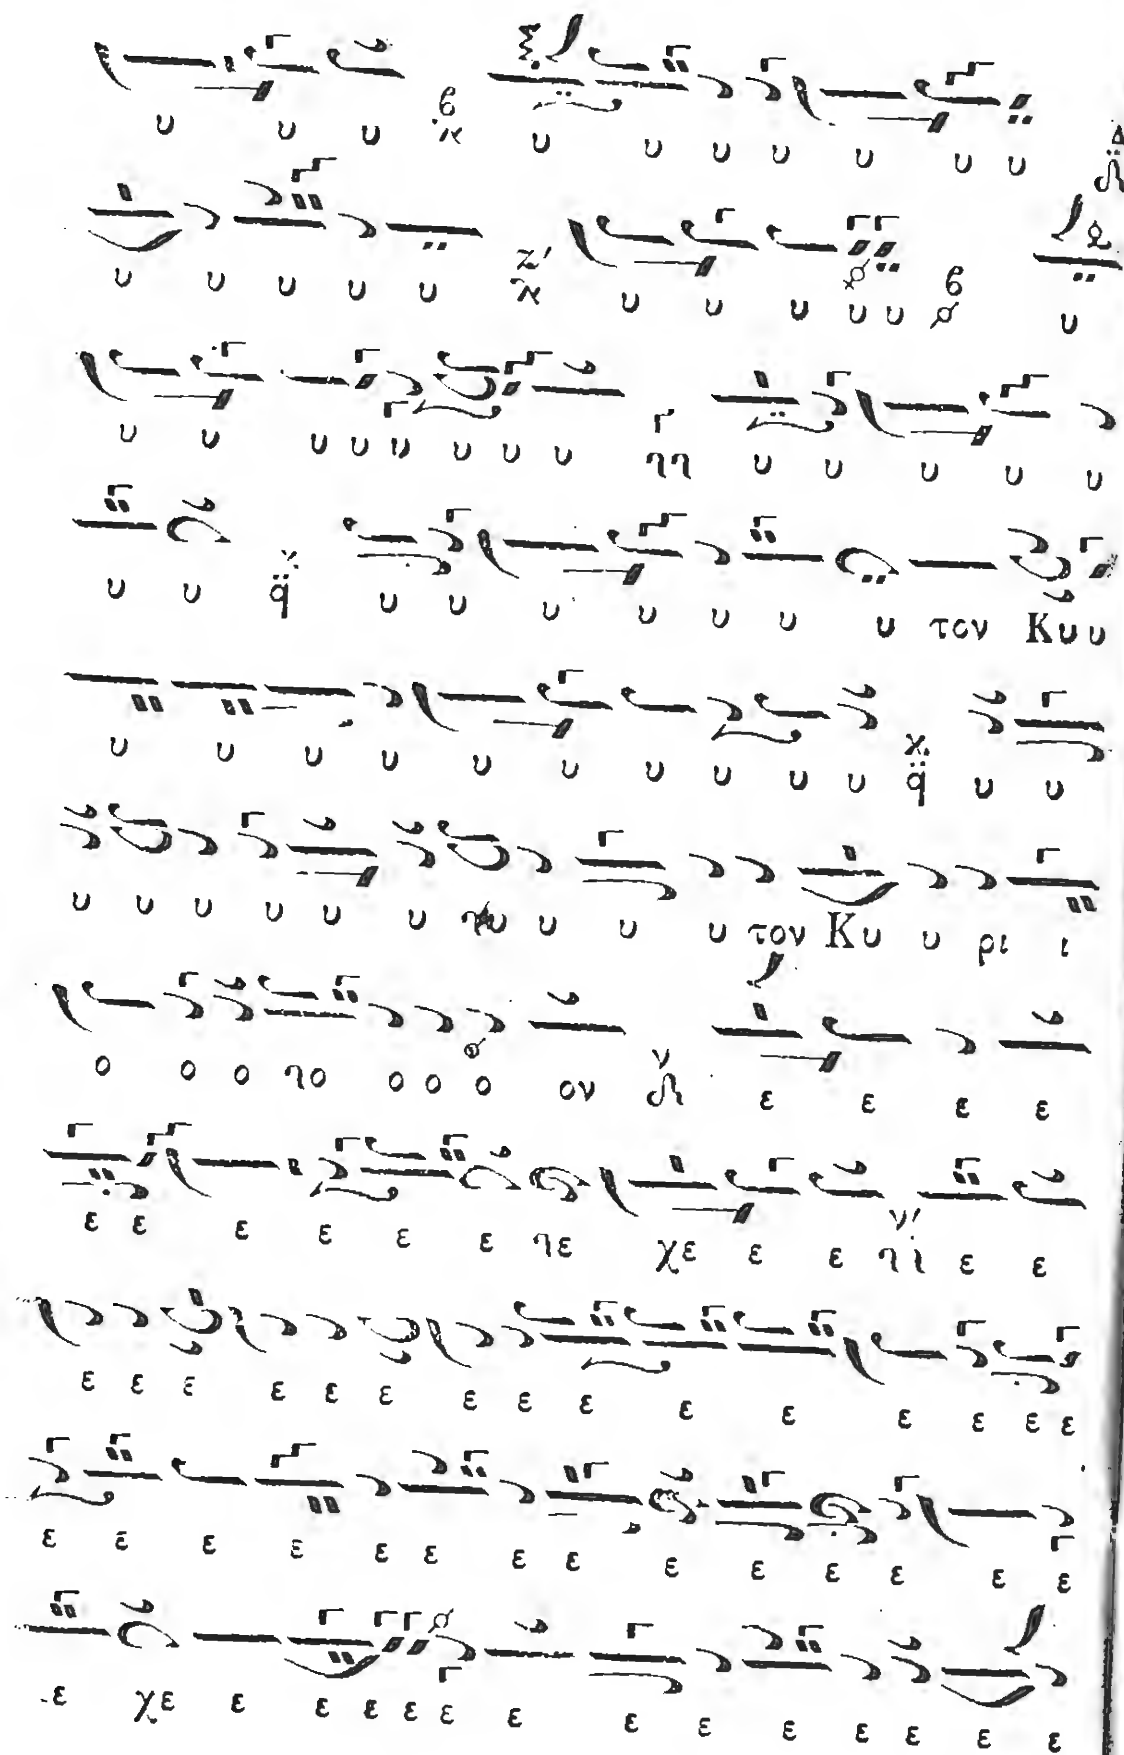 υ υ υ υ υ υ υ υ υ υ
υ υ υ υ υ υ υ υ υ υ υ
υ υ υ υ υ υ υ υ υ υ υ υ υ
υ υ υ υ υ υ υ υ υ τον Κυ υ
υ υ υ υ υ υ υ υ υ υ υ υ
υ υ υ υ υ υ υ υ υ τον Κυ υ ρι ι
ο ο ο ο ο ο ο ον ε ε ε ε
ε ε ε ε ε ε ε χε ε ε ε ε
ε ε ε ε ε ε ε ε ε ε ε ε ε ε ε
ε ε ε ε ε ε ε ε ε ε ε ε ε ε
ε χε ε ε ε ε ε ε ε ε ε ε ε ε ε